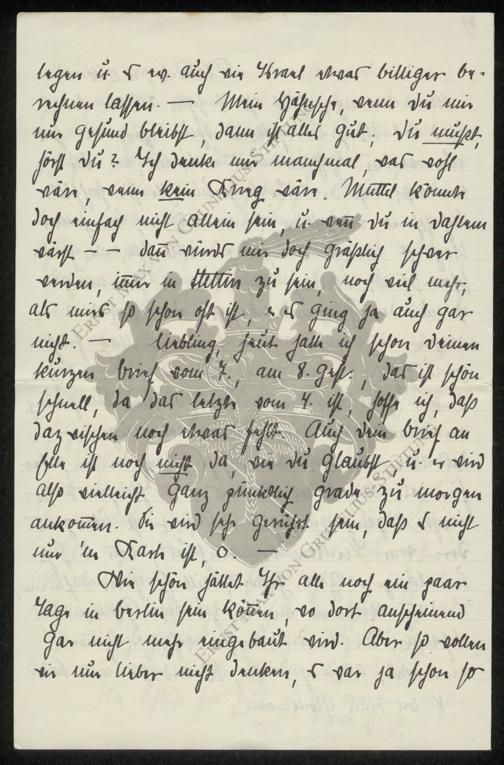 legen u. es ev. auch wie Israel etwas billiger be-
rechnen lassen. — Mein Hähnsche, wenn Du mir
nur gesund bleibst, dann ist alles gut; Du mußt,
hörst Du? Ich denke mir manchmal, was wohl
wäre, wenn kein Krieg wäre. Muttel könnte
doch einfach nicht allein sein, u. wenn du in Dahlem
wärst — — dann würde mir doch gräßlich schwer
werden, immer in Stettin zu sein, noch viel mehr,
als mir's so schon oft ist, u. es ging ja auch gar
nicht. — Liebling, heut hatte ich schon Deinen
kurzen Brief vom 7., am 8. gest., das ist schön
schnell, da das letzte vom 4. ist, hoffe ich, daß
dazwischen noch etwas fehlt. Auch Dein Brief an
ist noch nicht da, wie Du glaubst, u. er wird
also vielleicht ganz pünktlich grade zu morgen
ankommen. Sie wird sehr gerührt sein, daß es nicht
nur 'ne Karte ist, o. —
Wie schön hättet Ihr alle noch ein paar
Tage in Berlin sein können, wo dort anscheinend
gar nicht mehr eingebaut wird. Aber so wollen
wir nur lieber nicht denken, es war ja schon so
ERNST MAX VON GRUNELIUS-STIFTUNG
ERNST MAX VON GRUNELIUS-STIFTUNG